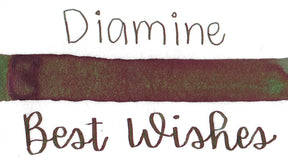 Diamine
Best Wishes